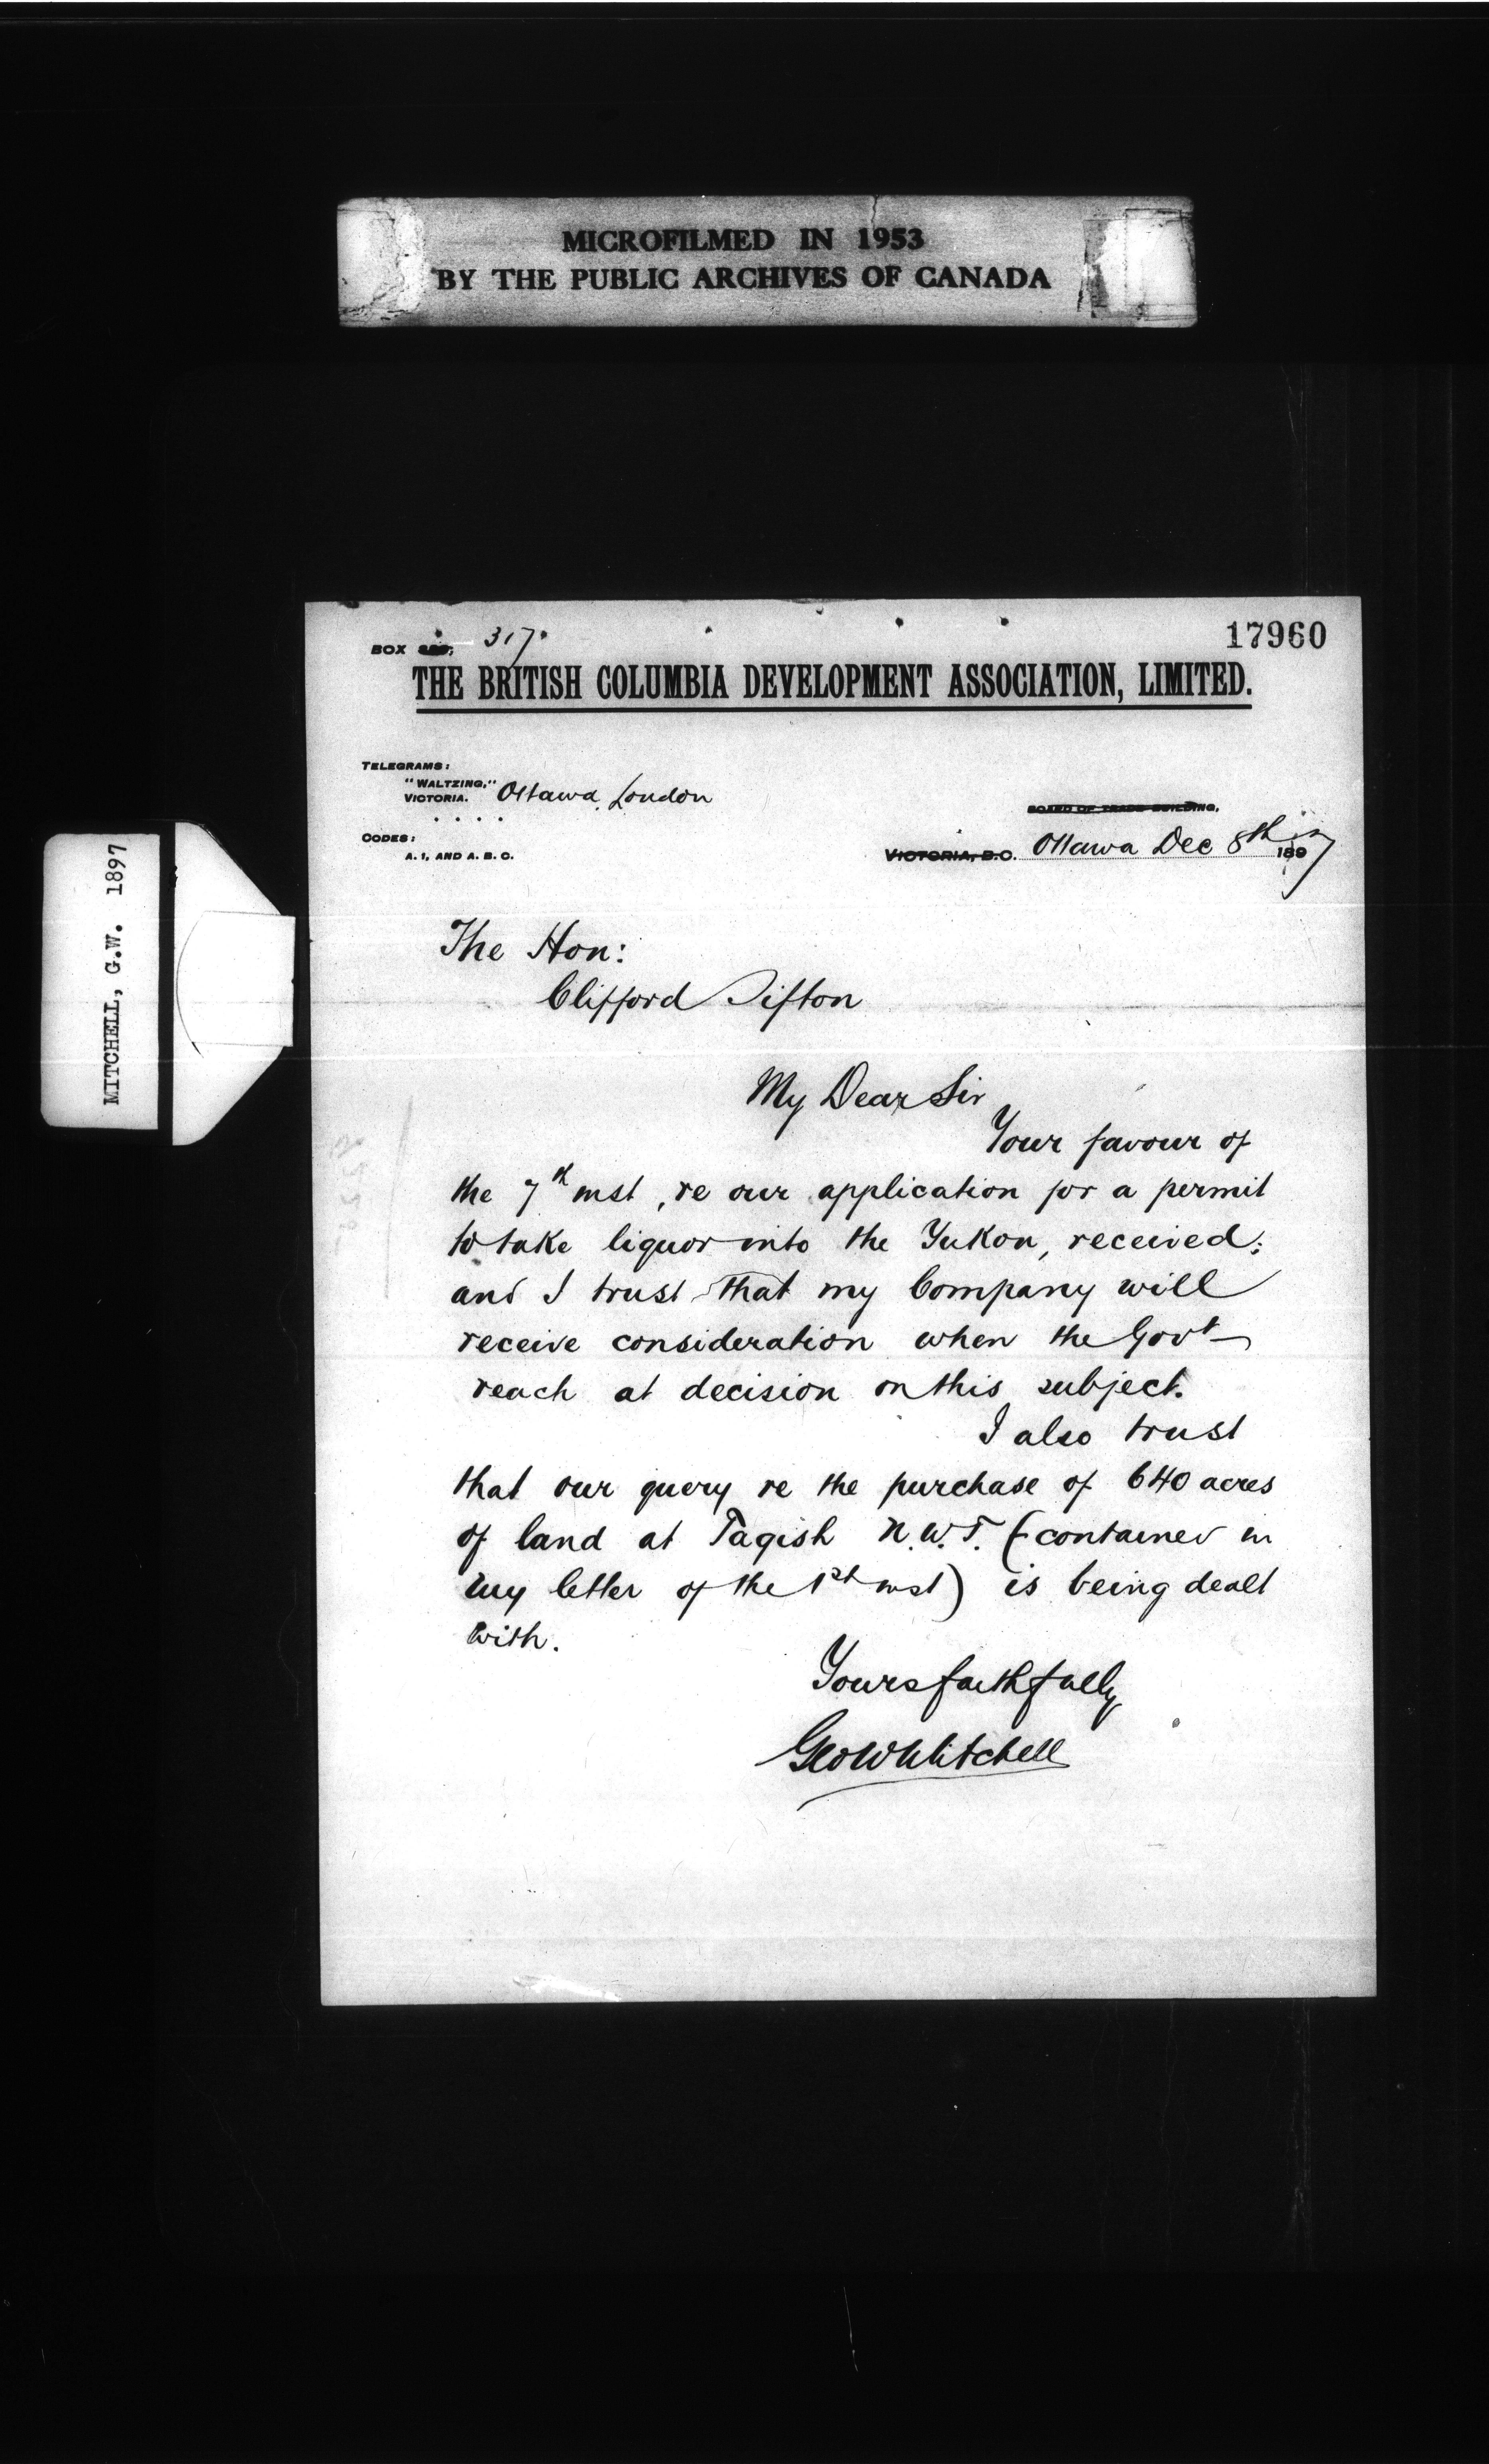 MICROFILMED IN 1953
BY THE PUBLIC ARCHIVES OF CANADA
MITCHELL, G.W. 1897
17960
BOX 317
THE BRITISH COLUMBIA DEVELOPMENT ASSOCIATION, LIMITED.
TELEGRAMS:
"WALTZING,"
VICTORIA. Ottawa, London
CODES:
A. 1, AND A. B. C.
BOARD OF TRADE BUILDING,
VICTORIA, B.C. Ottawa Dec 8th 1897
The Hon:
Clifford Sifton
My Dear Sir
Your favour of
the 7th inst, re our application for a permit
to take liquor into the Yukon, received;
and I trust that my Company will
receive consideration when the Govt
reach at decision on this subject.
I also trust
that our query re the purchase of 640 acres
of land at Tagish N.W.T. (contained in
my letter of the 1st inst) is being dealt
with.
Yours faithfully
Geo W Mitchell